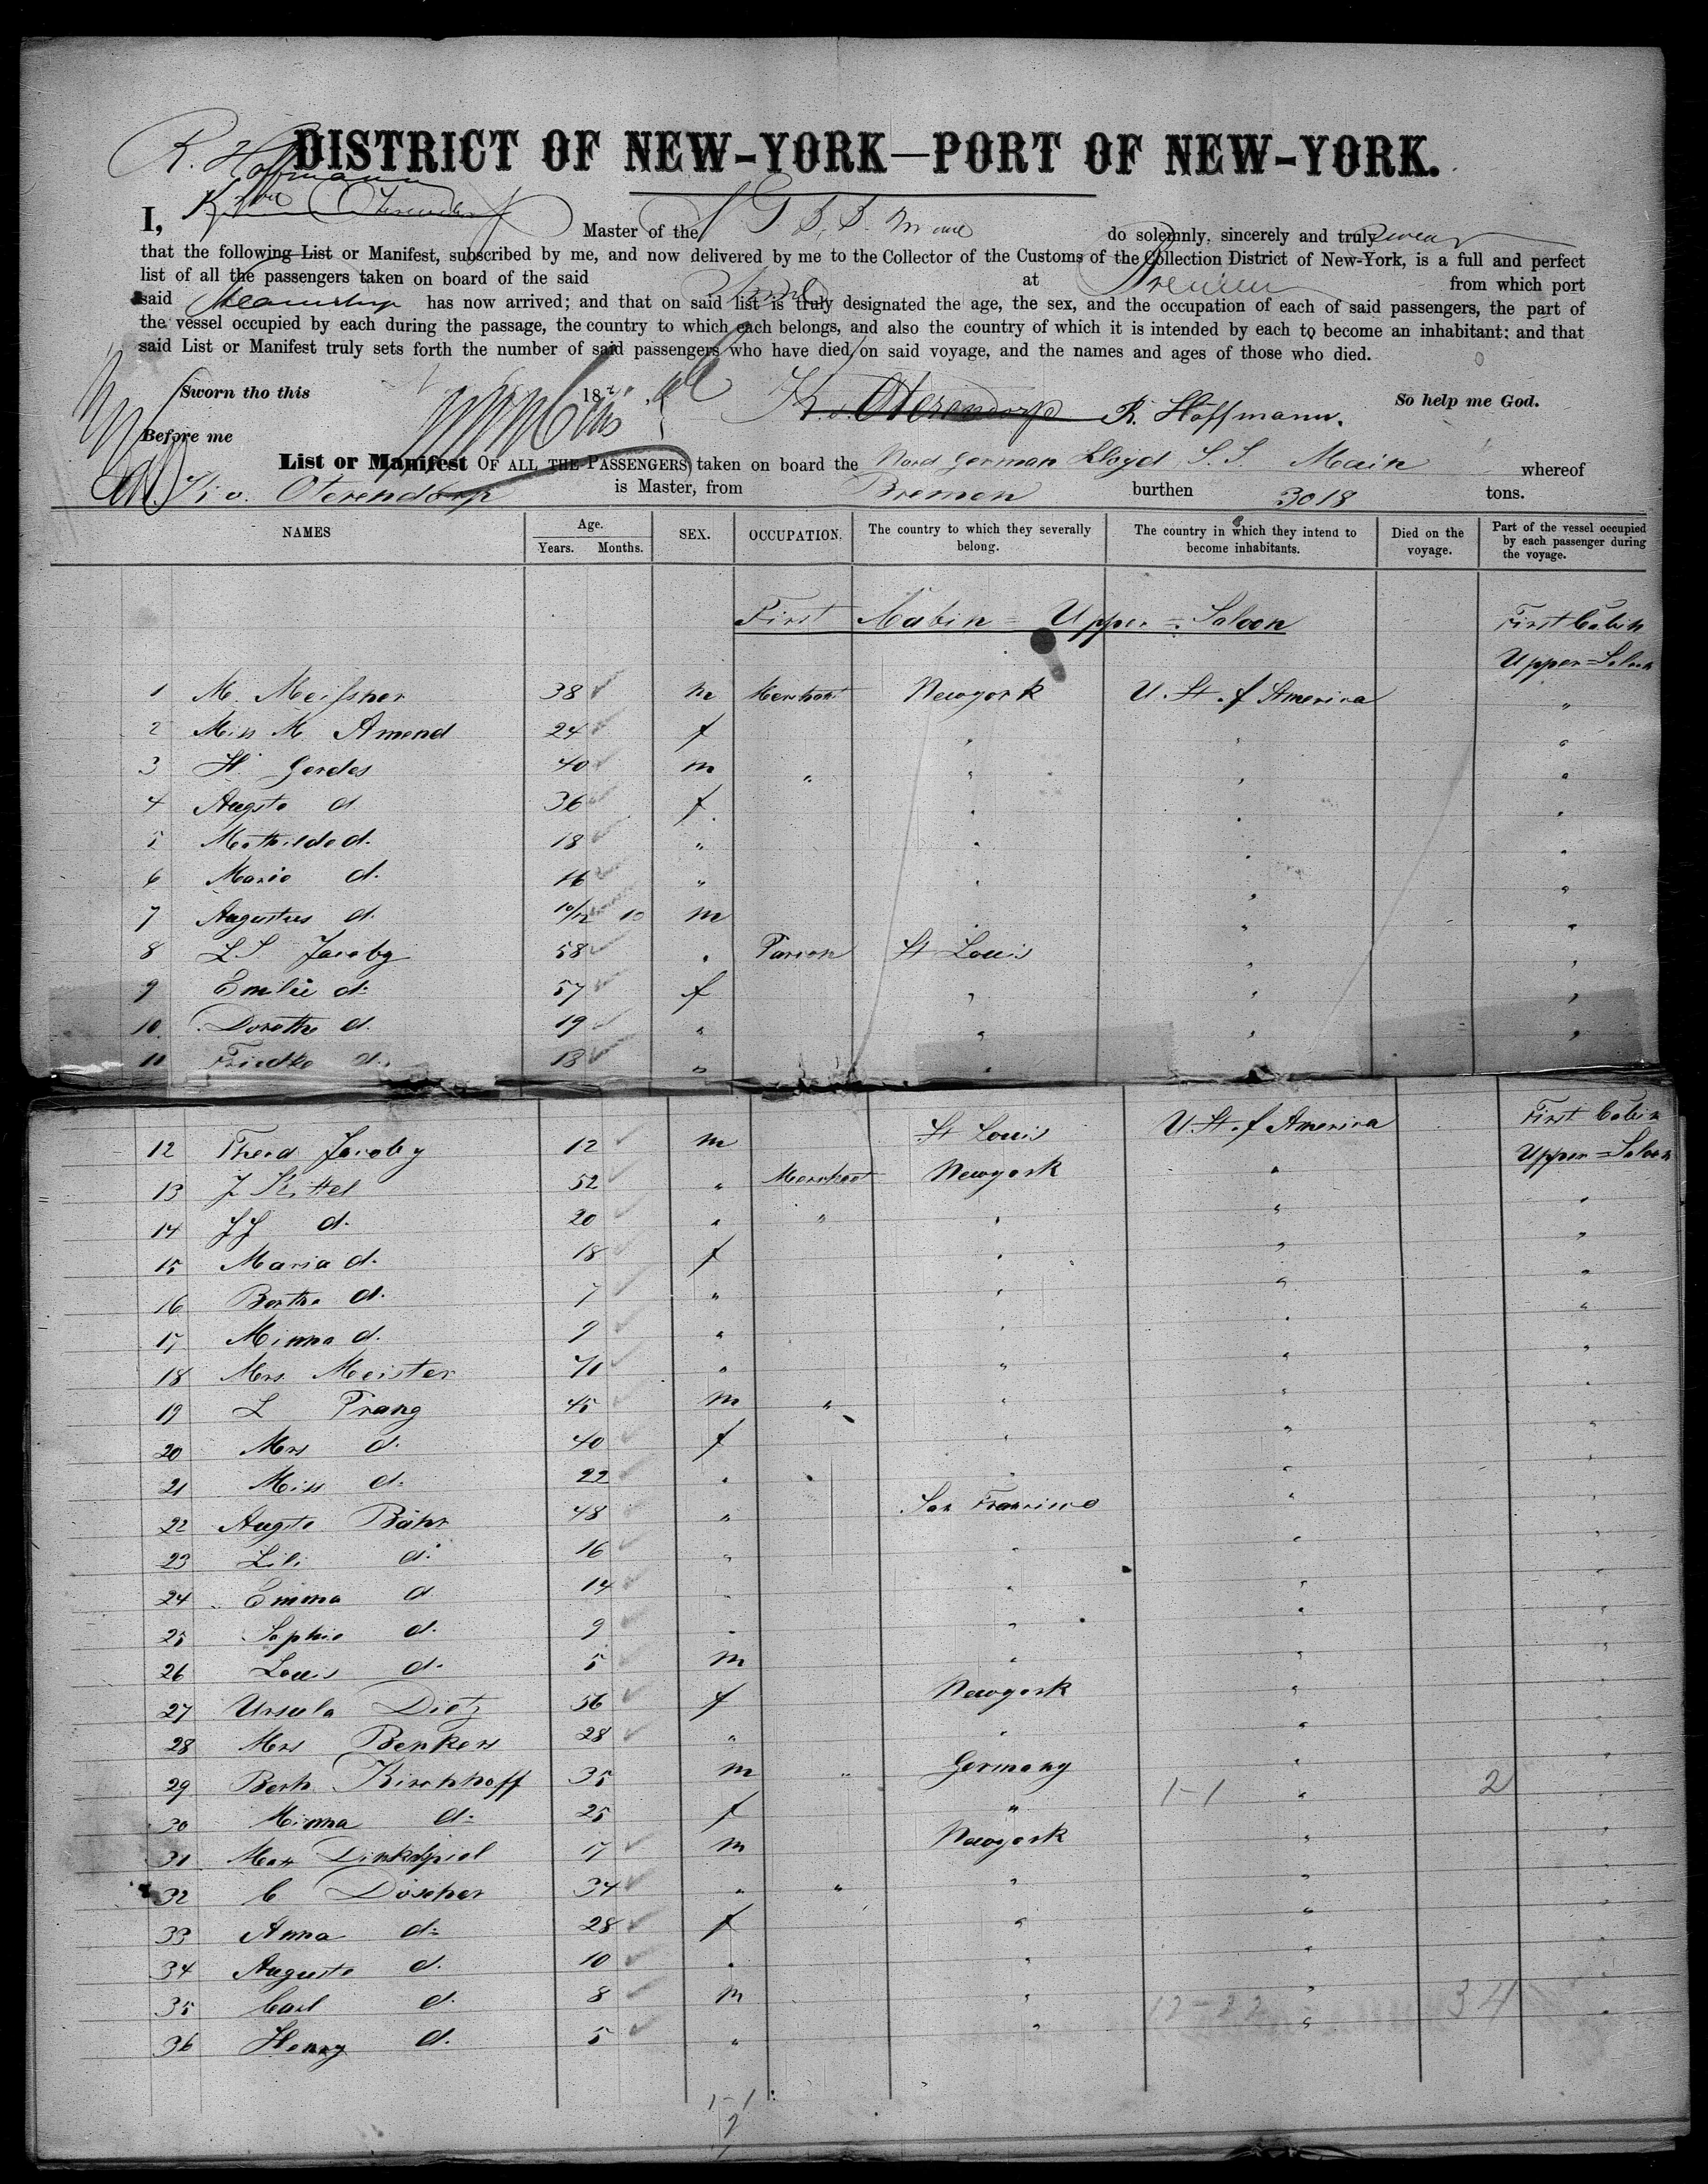 DISTRICT OF NEW-YORK—PORT OF NEW-YORK.
R. Hoffmann
I, K. v. Oterendorp Master of the N G S. S. Main do solemnly, sincerely and truly swear
that the following List or Manifest, subscribed by me, and now delivered by me to the Collector of the Customs of the Collection District of New-York, is a full and perfect
list of all the passengers taken on board of the said at Bremen from which port
said Steamship has now arrived; and that on said list is truly designated the age, the sex, and the occupation of each of said passengers, the part of
the vessel occupied by each during the passage, the country to which each belongs, and also the country of which it is intended by each to become an inhabitant; and that
said List or Manifest truly sets forth the number of said passengers who have died on said voyage, and the names and ages of those who died.
Sworn tho this 18 K. v. Oterendorp R. Hoffmann. So help me God.
Before me
List or Manifest OF ALL THE PASSENGERS taken on board the Nord German Lloyd S. S. Main whereof
K. v. Oterendorp is Master, from Bremen burthen 3018 tons.
NAMES Age. Years. Months. SEX. OCCUPATION. The country to which they severally belong. The country in which they intend to become inhabitants. Died on the voyage. Part of the vessel occupied by each passenger during the voyage.
First Cabin = Upper = Saloon First Cabin
Upper=Saloon
1 M. Meifsner 38 m Merchant Newyork U. St. of America "
2 Miss M. Amend 24 f " " "
3 H. Gerdes 40 m " " " "
4 Augste d. 36 f " " "
5 Mathilde d. 18 " " " "
6 Marie d. 16 " " " "
7 Augustus d. 10/12 10 m " "
8 L S Jacoby 58 " Parson St Louis " "
9 Emilie d. 57 f " " "
10 Dorothe d. 19 " " " "
11 Friedke d. 13 " "
12 Theod Jacoby 12 m St Louis U. St. of America First Cabin
13 J Kittel 52 " Merchant Newyork " Upper=Saloon
14 J J d. 20 " " " " "
15 Maria d. 18 f " " "
16 Bertha d. 7 " " " "
17 Minna d. 9 " " " "
18 Mrs Meister 71 " " " "
19 L Prang 45 m " " " "
20 Mrs d. 40 f " " "
21 Miss d. 22 " " " "
22 Augste Bähr 48 " San Francisco " "
23 Lili d. 16 " " " "
24 Emma d. 14 " " " "
25 Sophie d. 9 " " " "
26 Louis d. 5 m " " "
27 Ursula Dietz 56 f Newyork " "
28 Mrs Benkers 28 " " " "
29 Berh. Kirchhoff 35 m " Germany " "
30 Minna d. 25 f " 1-1 " 2 "
31 Max Dinkelspiel 17 m Newyork " "
32 C Döscher 34 " " " " "
33 Anna d. 28 f " " "
34 Auguste d. 10 " " " "
35 Carl d. 8 m " 12-22 " 34 "
36 Henry d. 5 " " " "
1-1
2